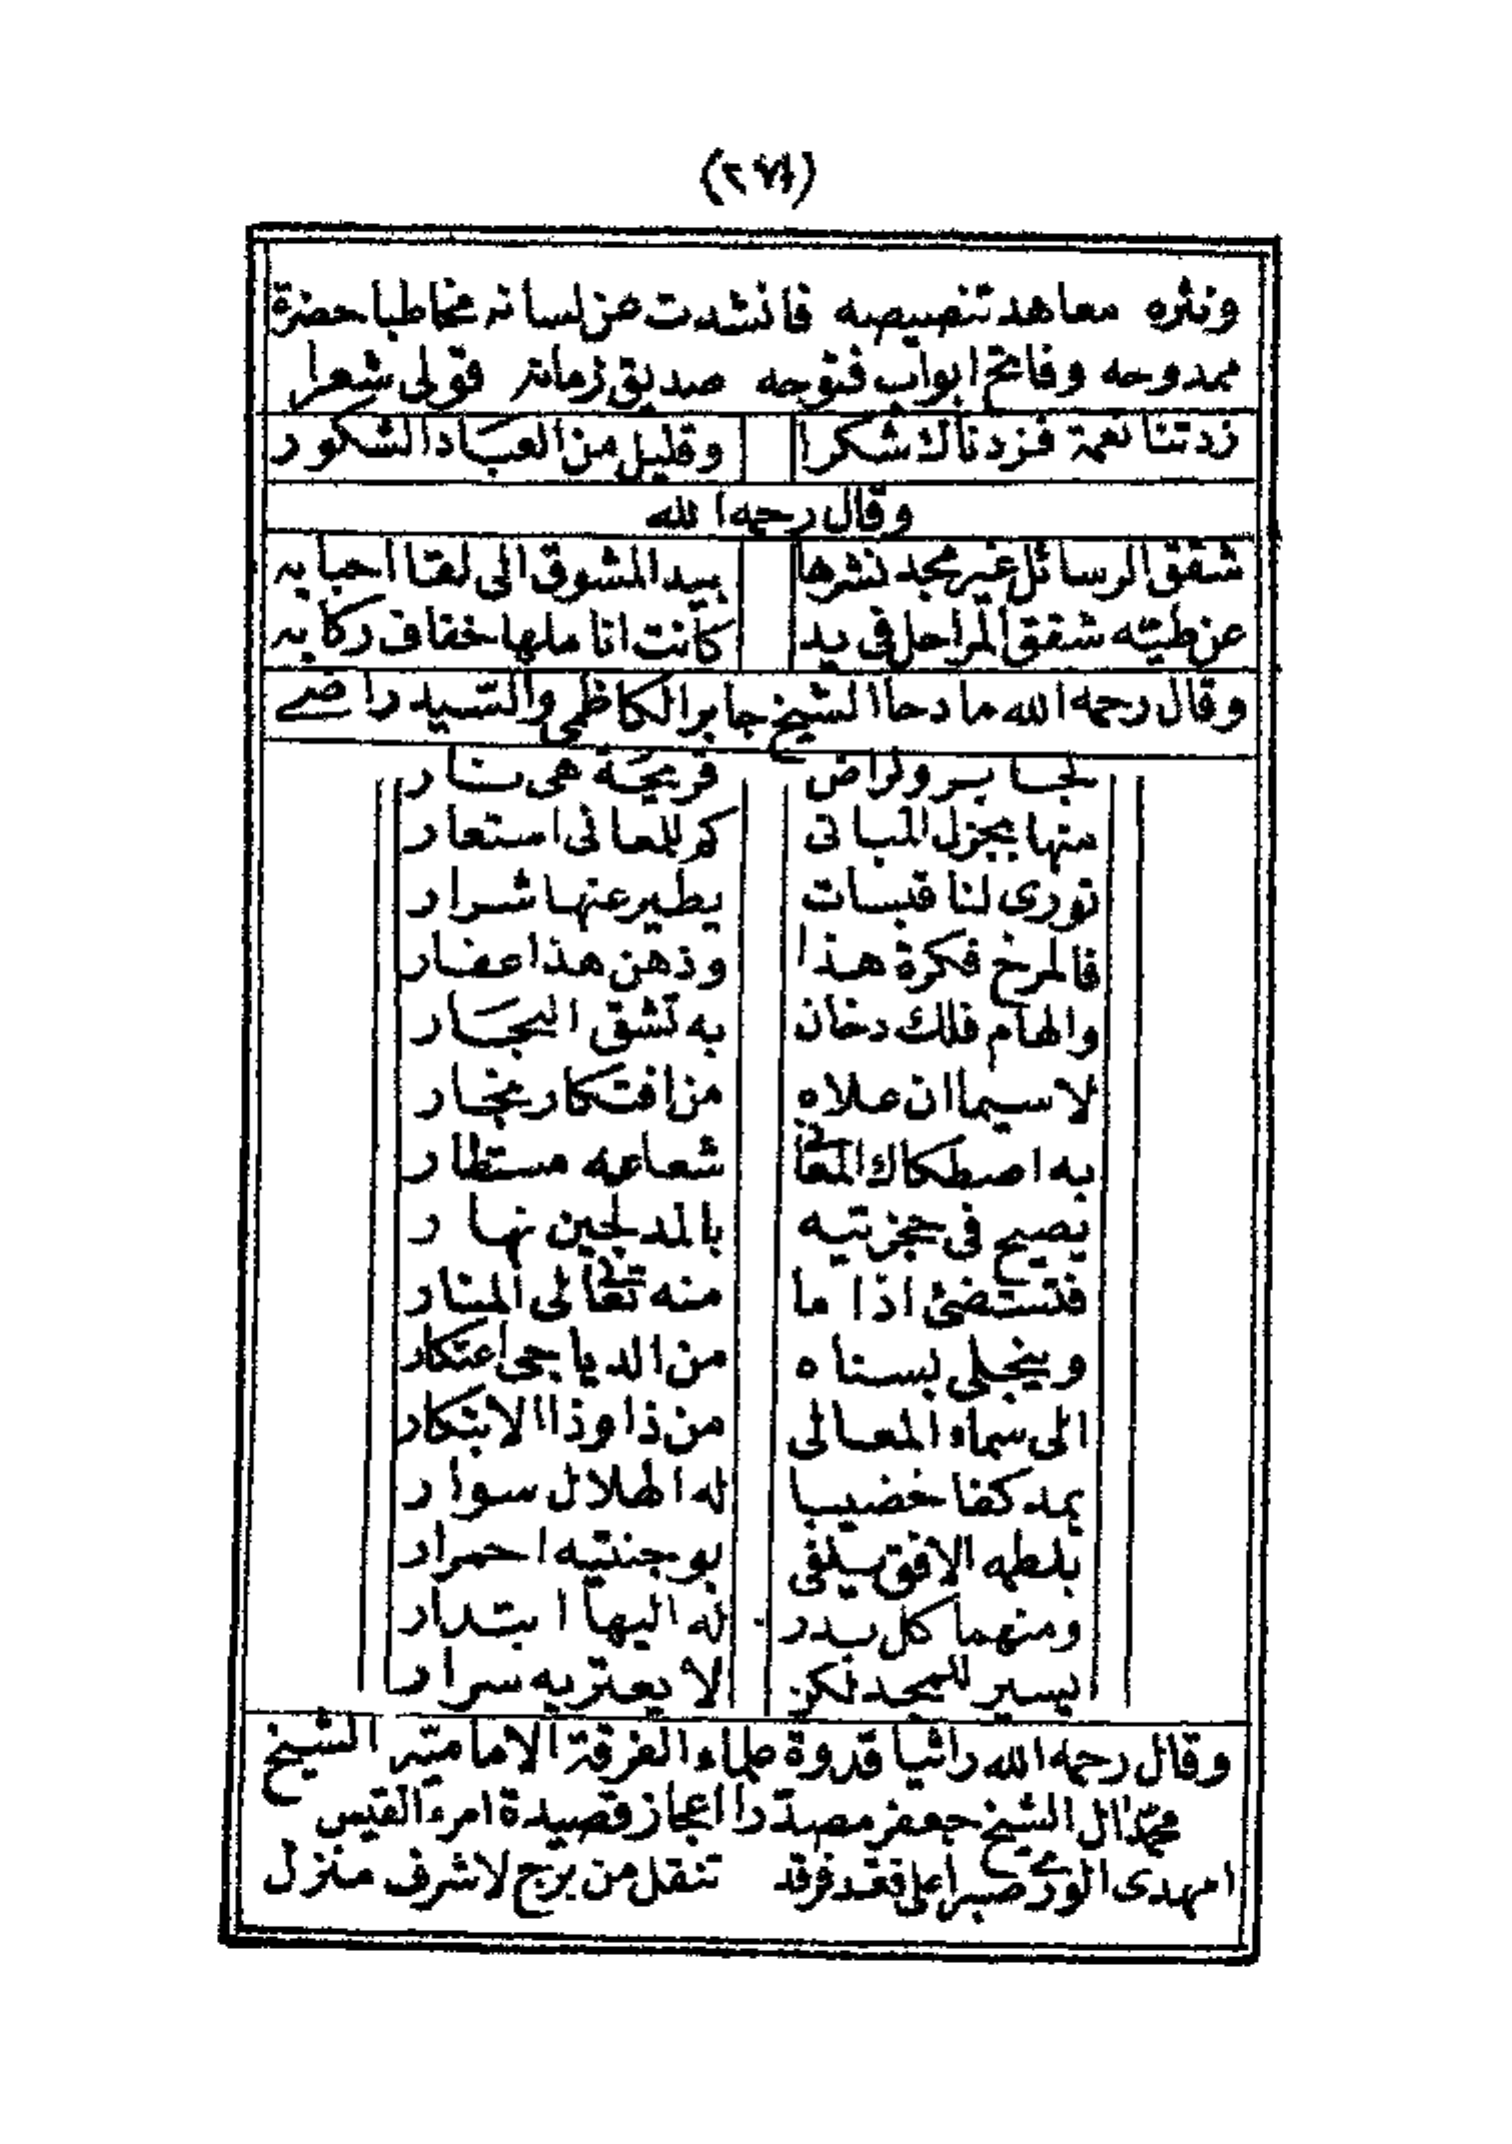 ونثره معاهد تنصيصه فانشدت عن لسانه مخاطبا حضرة
ممدوحه وفاتح ابواب فتوحه صديق زمانه قولى شعرا
زدتنا نعمة فزدناك شكرا وقليل من العباد الشكور
وقال رحمه الله
شقق الرسائل غير مجد نشرها بيد المشوق الى لقا احبابه
عن طيّه شقق المراحل فى يد كانت اناملها خفاف ركابه
وقال رحمه الله مادحا الشيخ جابر الكاظمى والسيد راضے
لجابر ولراض قريحة هى نار
منها بجزل المبانى كم للمعانى استعار
تورى لنا قبسات يطير عنها شرار
فالمرخ فكرة هذا وذهن هذا عفار
والهام فلك دخان به تشق البحار
لاسيما ان علاه من افتكار بخار
به اصطكاك المعانى شعاعه مستطار
يصيح فى حجزتيه بالمدلجين نهار
فتستضئ اذا ما منه تعالى المنار
وينجلى بسناه من الدياجى اعتكار
الى سماء المعالى من ذا وذا الابتكار
يمد كفا خضيبا له الهلال سوار
بلطمه الافق يلفى بوجنتيه احمرار
ومنهما كل بدر له اليها ابتدار
يسير للمجد لكن لا يعتريه سرار
وقال رحمه الله راثيا قدوة علماء الفرقة الاماميّه الشيخ
محمّد ال الشيخ جعفر مصدّرا اعجاز قصيدة امرء القيس
امهدى الورى صبرا على فقد فرقد تنقل من برج لاشرف منزل